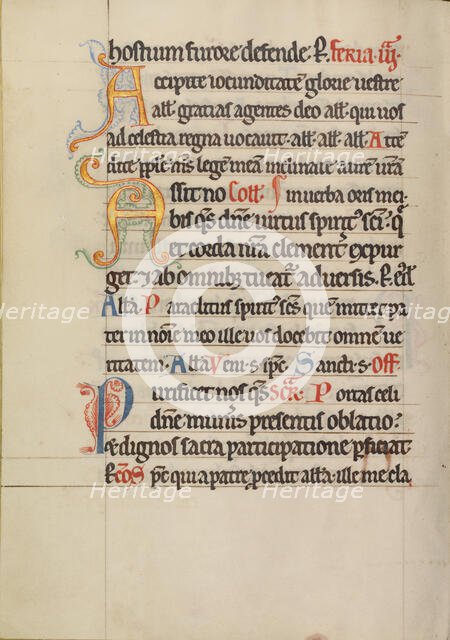 hostium furore defende. R. Feria .iii.
Accipite iocunditatē glorie vestre
all'. gratias agentes deo all'. qui uos
ad celestia regna uocauit. all'. all'. all'. Atte
dite ppl'e m̄s legē meā inclinate aurem urām
Assit no Coll'. in uerba oris mei.
bis q̄s dn̄e uirtus spirit' sc̄i. q̄
et corda nr̄a clementer expur
get. & ab omnibz tueat' aduersis. R. ep̄l
Alla. Paraclitus spirit' sc̄s quē mittet pa
ter in noīe meo ille uos docebit omnem ue
ritatem. Alla Veni. s. sp̄c. Sancti. s. Off
Purificet nos q̄s Sec̄r. Portas celi
dn̄e muneris presentis oblatio?
& dignos sacra participatione pficiat.
R. Cō̄s Sp̄c qui a patre pcedit alla. ille me cla
Heritage
Heritage
Heritage
Heritage
Heritage
Heritage
Heritage